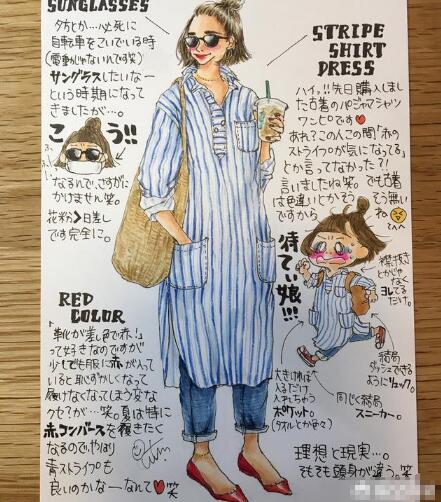 SUNGLASSES
夕方とか…必死に
自転車をこいでいる時
(電動じゃないれす笑)
サングラスしたいなー
という時期になって
きましたが…。
こう!!
なるんで、さすがに
かけません。笑
花粉>日差し
です完全に。
STRIPE
SHIRT
DRESS
ハイッ!!先日購入しました
古着のパジャマシャツ
ワンピです♥
あれ?この人この間「赤の
ストライプが気になってる」
とか言ってなかった?!
言いましたね。笑 でも古着
は色違いとかそうそう無い
ですから
ね
待てぃ娘!!!
襟抜き
とかじゃ
なく
ヨレてる
だけ。
結局
ダッシュできる
ようにリュック。
同じく結局
スニーカー。
大きければ
入るだけ
入れちゃう
ポケット。
(タオルとか…)
理想と現実…。
そもそも頭身が違う。笑
RED
COLOR
「靴が差し色で赤!」
って好きなのですが
少しでも服に赤が入って
いると恥ずかしくなって
履けなくなってしまう変な
クセ?が…笑。夏は特に
赤コンバースを履きたく
なるので、やはり
青ストライプも
良いのかなーなんて♥笑